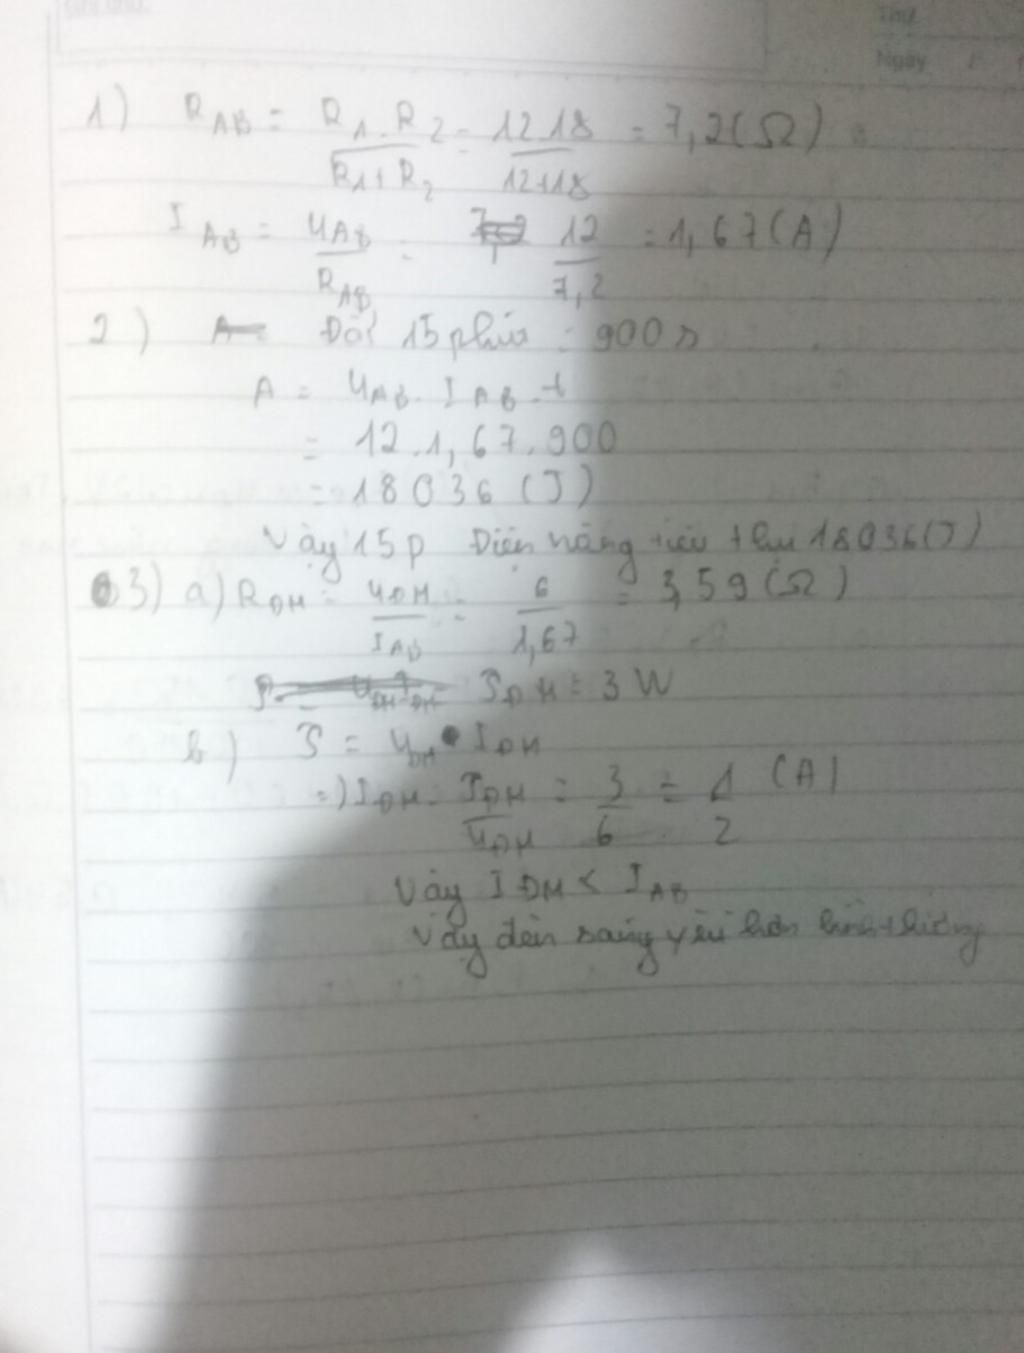 Ghi chú:
Thứ
Ngày
1) R AB = R1.R2 / R1+R2 = 12.18 / 12+18 = 7,2(Ω)
I AB = UAB / RAB = 12 / 7,2 = 1,67(A)
2) Đổi 15 phút = 900s
A = UAB. I AB. t
= 12.1,67.900
= 18036 (J)
Vậy 15p Điện năng tiêu thụ 18036(J)
3) a) RĐM = UĐM / IAB = 6 / 1,67 = 3,59(Ω)
PĐM = 3W
b) P = UĐM . IĐM
=) IĐM = PĐM / UĐM = 3 / 6 = 1 / 2 (A)
Vậy I ĐM < I AB
Vậy đèn sáng yếu hơn bình thường